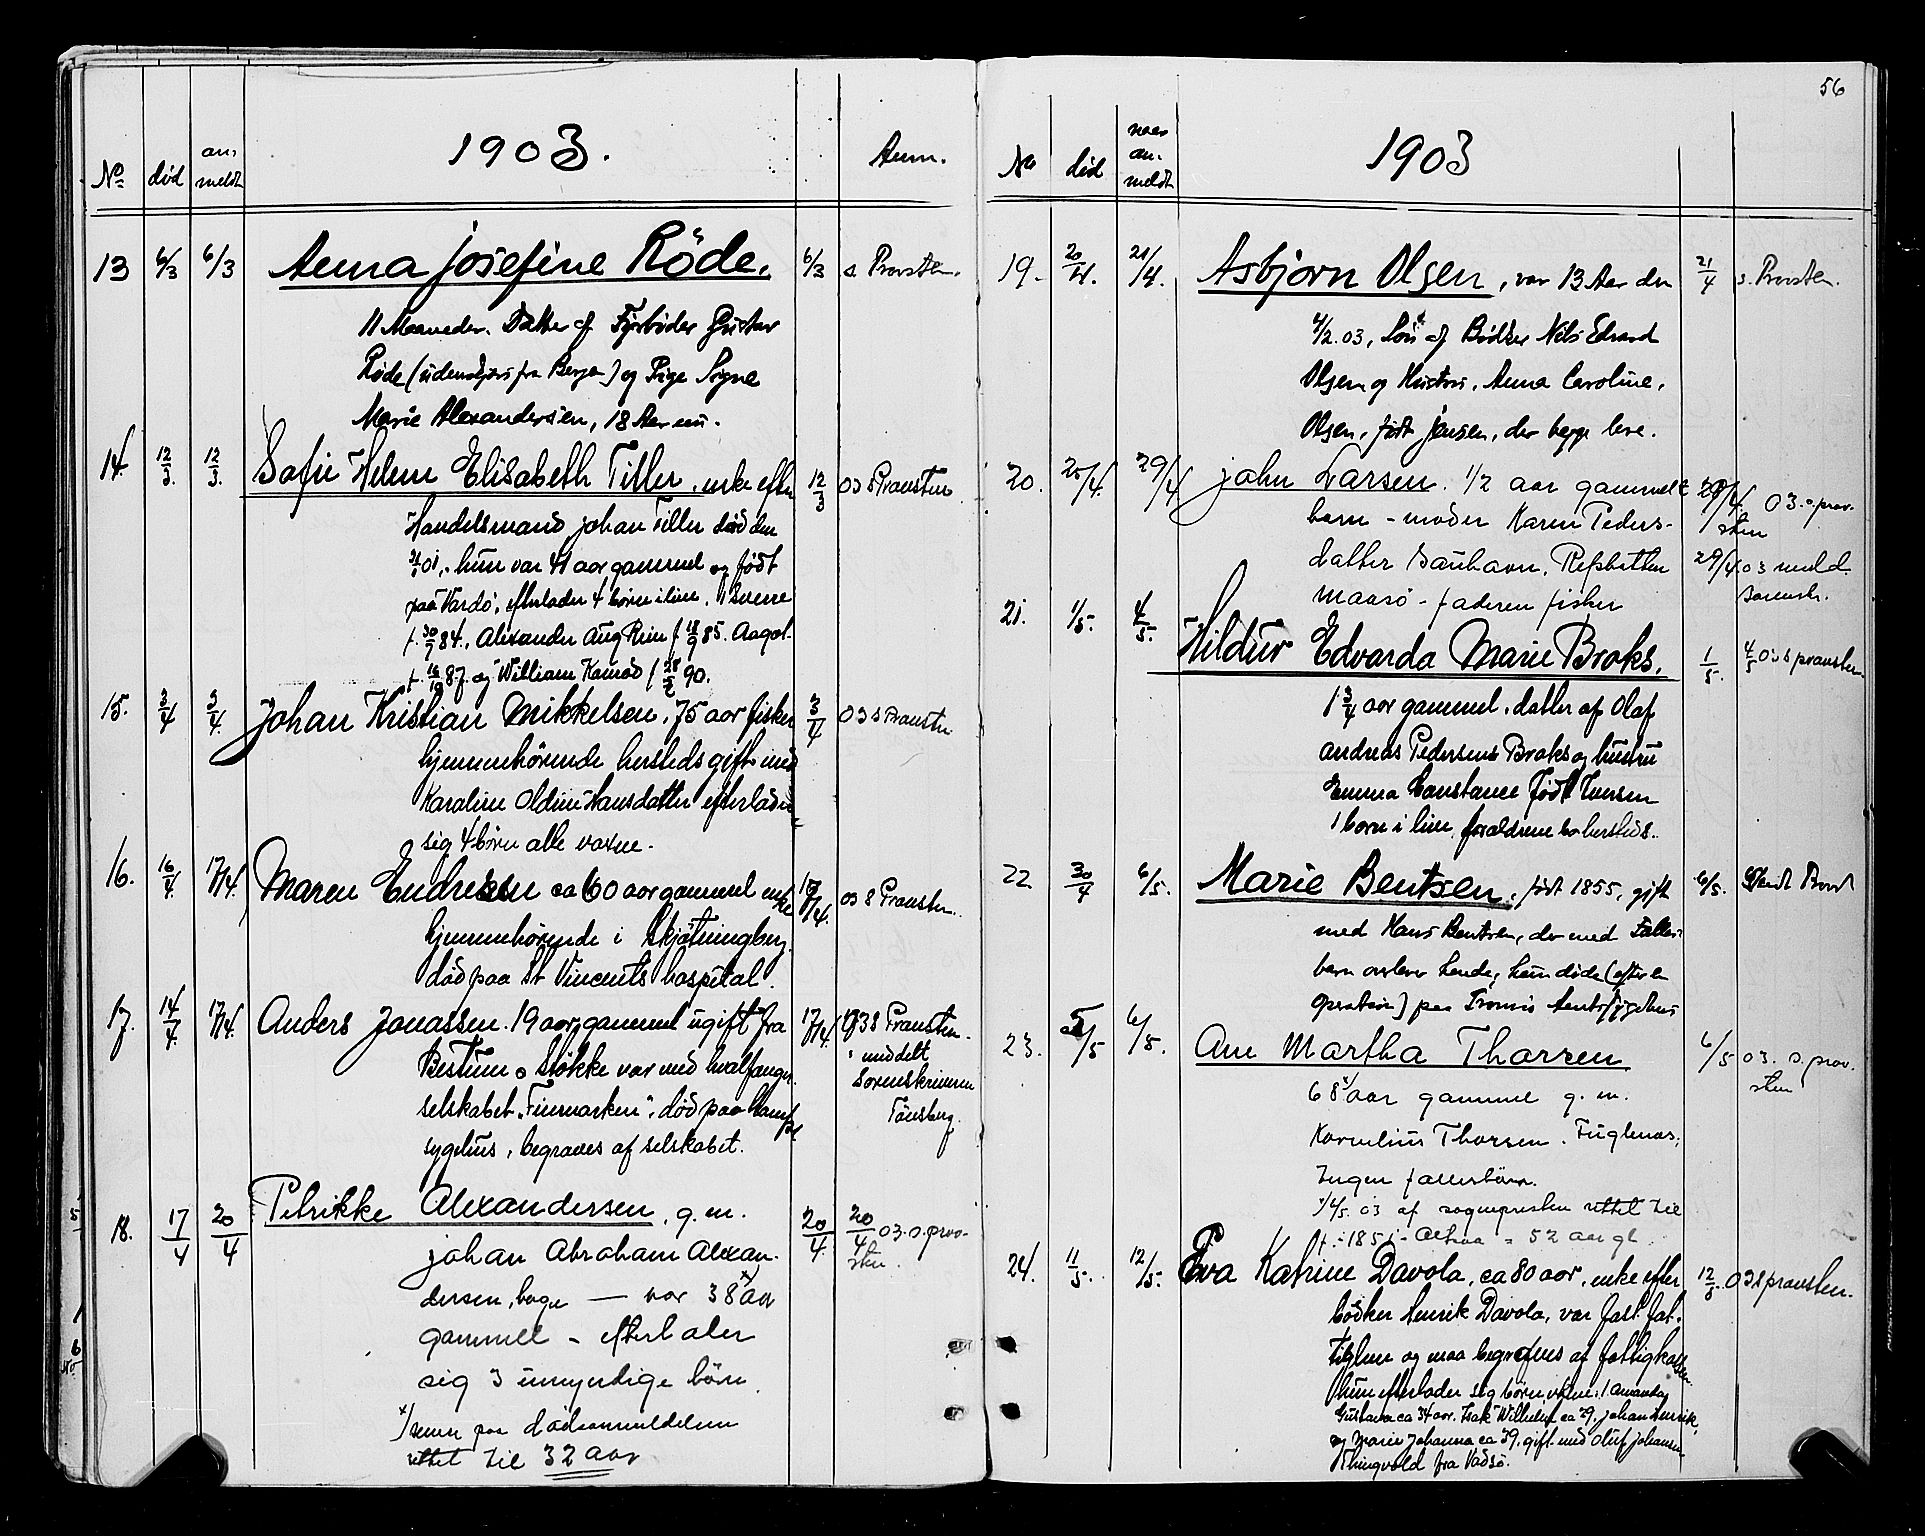 56
1903. Anm.
No død anmeldt
13 6/3 6/3 Anna Josefine Röde. 6/3 s Provsten.
11 Maaneder. Datter af Fyrbøder Gustav
Röde (udenbyes fra Bergen) og Pige Signe
Marie Alexandersen, 18 Aar nu.
14. 12/3. 12/3. Sofie Helene Elisabeth Tiller. enke efter 12/3 03 s Provsten
Handelsmand Johan Tiller død den
01, hun var 41 aar gammel og født
paa Vardö, efterlader 4 börn i live, Sverre
f. 30/7 84, Alexander Aug Rein f 18/9 85. Aagot
f. 16/10 87 og William Konrad f 28/2 90.
15. 3/4 3/4. Johan Kristian Mikkelsen, 75 aar fisker 3/4 03 s Provsten
hjemmehörende hersteds gift med
Karoline Oldine Hansdatter efterlader
sig 4 börn alle voxne.
16. 16/4. 17/4. Maren Endresen ca 60 aar gammel enke 17/4. 03 s Provsten.
hjemmehörende i Skjötningberg.
død paa St Vincents hospital.
17. 14/4. 17/4. Anders Jonassen. 19 aar gammel ugift fra 17/4. 03 s Provsten.
meddelt
Bestum o Stökke var med hvalfanger
Sorenskriveren
selskabet "Finmarken", död paa Hamf.
Tönsberg.
sygehus, begraves af selskabet.
18. 17/4 20/4 Petrikke Alexandersen, g.m. 20/4 20/4 03. s. prov-
sten.
Johan Abraham Alexan-
dersen, — var 38 x) aar
gammel - efterlader
sig 3 umyndige börn.
x) senere paa dödsanmeldelsen
rettet til 32 aar
1903
No död anmeldt
19. 20/4. 21/4. Asbjørn Olsen, var 13 Aar den 21/4 s. Provsten.
4/2. 03, Søn af Bødker Nils Edvard
Olsen og Hustru, Anna Caroline,
Olsen, født Jensen, der begge leve.
20. 25/4. 29/4 John Larsen. 1/2 aar gammelt 29/4. 03. s. prov-
sten
barn - moder Karen Peders-
datter Sauhavn, Refsbotten 29/4 03 meld.
Sorenskr.
Maasö - faderen fisker
21. 1/5. 4/5. Hildur Edvarda Marie Broks. 1/5. 4/5 03 s provsten
1 3/4 aar gammel, datter af Olaf
Andreas Pedersens Broks og hustru
Emma Constance född Iversen
1 barn i live, forældrene bo hersteds.
22 30/4 6/5. Marie Bentsen, født 1855, gift 6/5. Sendt Provst
med Hans Bentsen, der med Fælles-
barn overlever hende, hun døde (efter en
Operation) paa Tromsø Amtssygehus
23. 5/5 6/5. Ane Martha Thorsen 6/5 03. s. prov-
sten
68 x) aar gammel g. m.
Kornelius Thorsen. Fuglenæs,
Ingen fællesbörn.
x) 14/5. 03 af sognepresten rettet til
f. 1851 - Altha = 52 aar gl.
24. 11/5. 12/5. Eva Katrine Davola, ca 80 aar, enke efter 12/5. 03 s provsten.
bödker Henrik Davola, var fast fat-
tiglem og maa begraves af fattigkassen.
hun efterlader sig börn vxne: 1 Amanda
Gustava ca 34 aar. Isak Wilhelm ca 29. Johan Henrik
og Marie Johanna ca 39. gift med Oluf Johansen
Thingvold fra Vadsö.